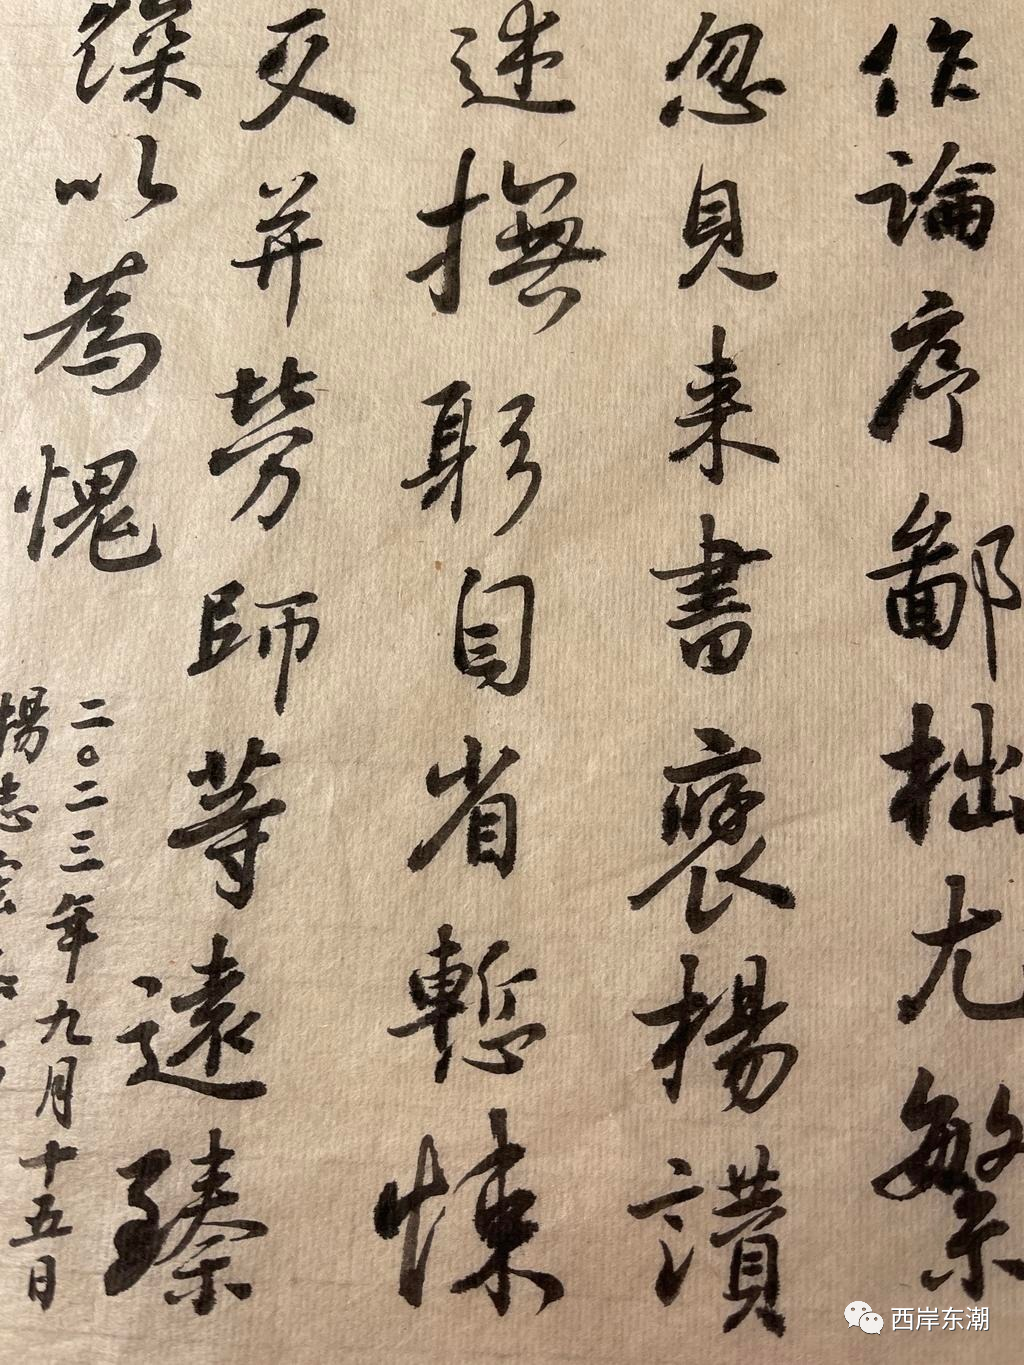 作論序鄙拙尤繁
忽見来書褒揚讃
述撫躬自省慙悚
交并勞師等遠臻
深以為愧
二〇二三年九月十五日
楊志宏
西岸东潮